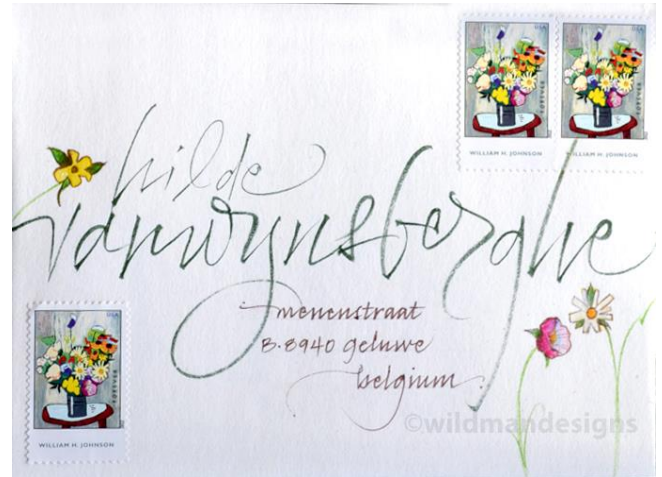 USA USA
FOREVER FOREVER
WILLIAM H. JOHNSON WILLIAM H. JOHNSON
hilde
vanwynsberghe
menenstraat
B.8940 geluwe
belgium
USA
FOREVER
WILLIAM H. JOHNSON
©wildmandesigns